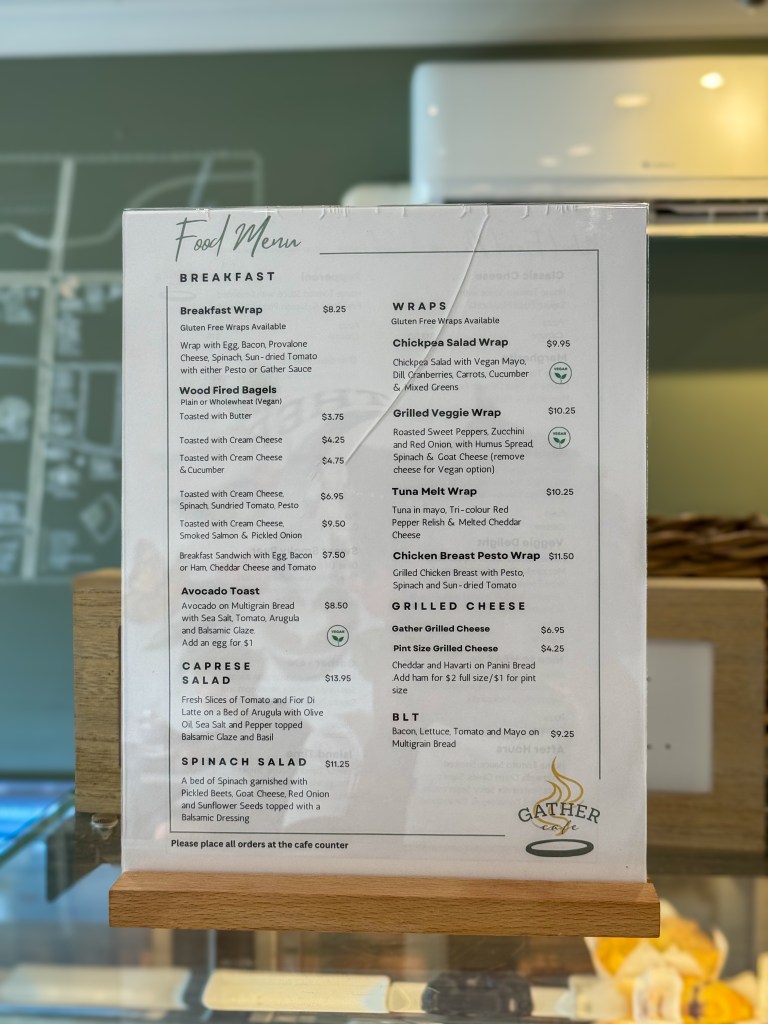 Food Menu
BREAKFAST
Breakfast Wrap $8.25
Gluten Free Wraps Available
Wrap with Egg, Bacon, Provalone
Cheese, Spinach, Sun-dried Tomato
with either Pesto or Gather Sauce
Wood Fired Bagels
Plain or Wholewheat (Vegan)
Toasted with Butter $3.75
Toasted with Cream Cheese $4.25
Toasted with Cream Cheese
& Cucumber $4.75
Toasted with Cream Cheese,
Spinach, Sundried Tomato, Pesto $6.95
Toasted with Cream Cheese,
Smoked Salmon & Pickled Onion $9.50
Breakfast Sandwich with Egg, Bacon
or Ham, Cheddar Cheese and Tomato $7.50
Avocado Toast
Avocado on Multigrain Bread $8.50
with Sea Salt, Tomato, Arugula
and Balsamic Glaze.
Add an egg for $1
VEGAN
CAPRESE
SALAD $13.95
Fresh Slices of Tomato and Fior Di
Latte on a Bed of Arugula with Olive
Oil, Sea Salt and Pepper topped
Balsamic Glaze and Basil
SPINACH SALAD $11.25
A bed of Spinach garnished with
Pickled Beets, Goat Cheese, Red Onion
and Sunflower Seeds topped with a
Balsamic Dressing
Please place all orders at the cafe counter
WRAPS
Gluten Free Wraps Available
Chickpea Salad Wrap $9.95
Chickpea Salad with Vegan Mayo,
Dill, Cranberries, Carrots, Cucumber
& Mixed Greens
VEGAN
Grilled Veggie Wrap $10.25
Roasted Sweet Peppers, Zucchini
and Red Onion, with Humus Spread,
Spinach & Goat Cheese (remove
cheese for Vegan option)
VEGAN
Tuna Melt Wrap $10.25
Tuna in mayo, Tri-colour Red
Pepper Relish & Melted Cheddar
Cheese
Chicken Breast Pesto Wrap $11.50
Grilled Chicken Breast with Pesto,
Spinach and Sun-dried Tomato
GRILLED CHEESE
Gather Grilled Cheese $6.95
Pint Size Grilled Cheese $4.25
Cheddar and Havarti on Panini Bread
Add ham for $2 full size/$1 for pint
size
BLT
Bacon, Lettuce, Tomato and Mayo on
Multigrain Bread $9.25
GATHER
cafe